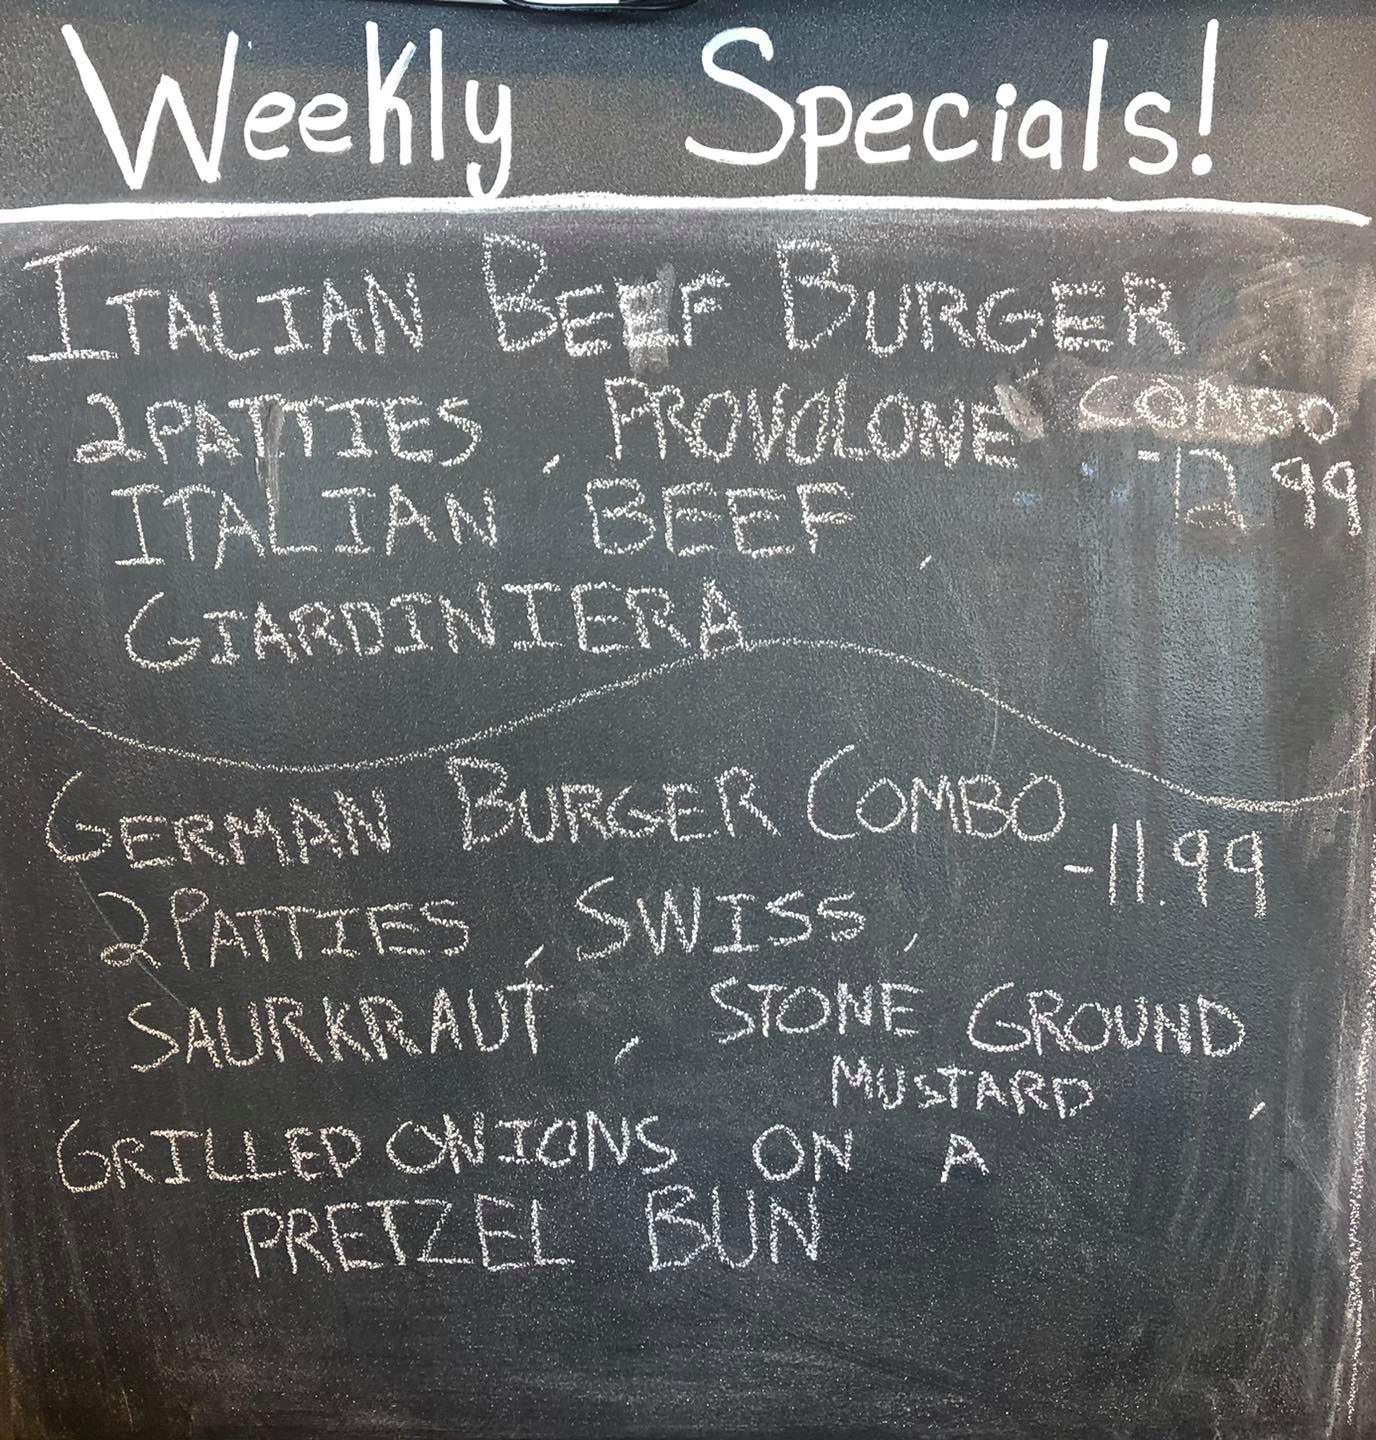 Weekly Specials!
ITALIAN BEEF BURGER
2 PATTIES, PROVOLONE COMBO
ITALIAN BEEF, -12 99
GIARDINIERA
GERMAN BURGER COMBO
-11.99
2 PATTIES, SWISS,
SAURKRAUT, STONE GROUND
MUSTARD,
GRILLED ONIONS ON A
PRETZEL BUN